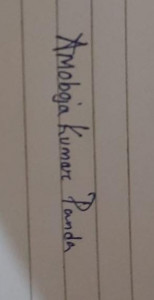 Amoboja Kumar Panda